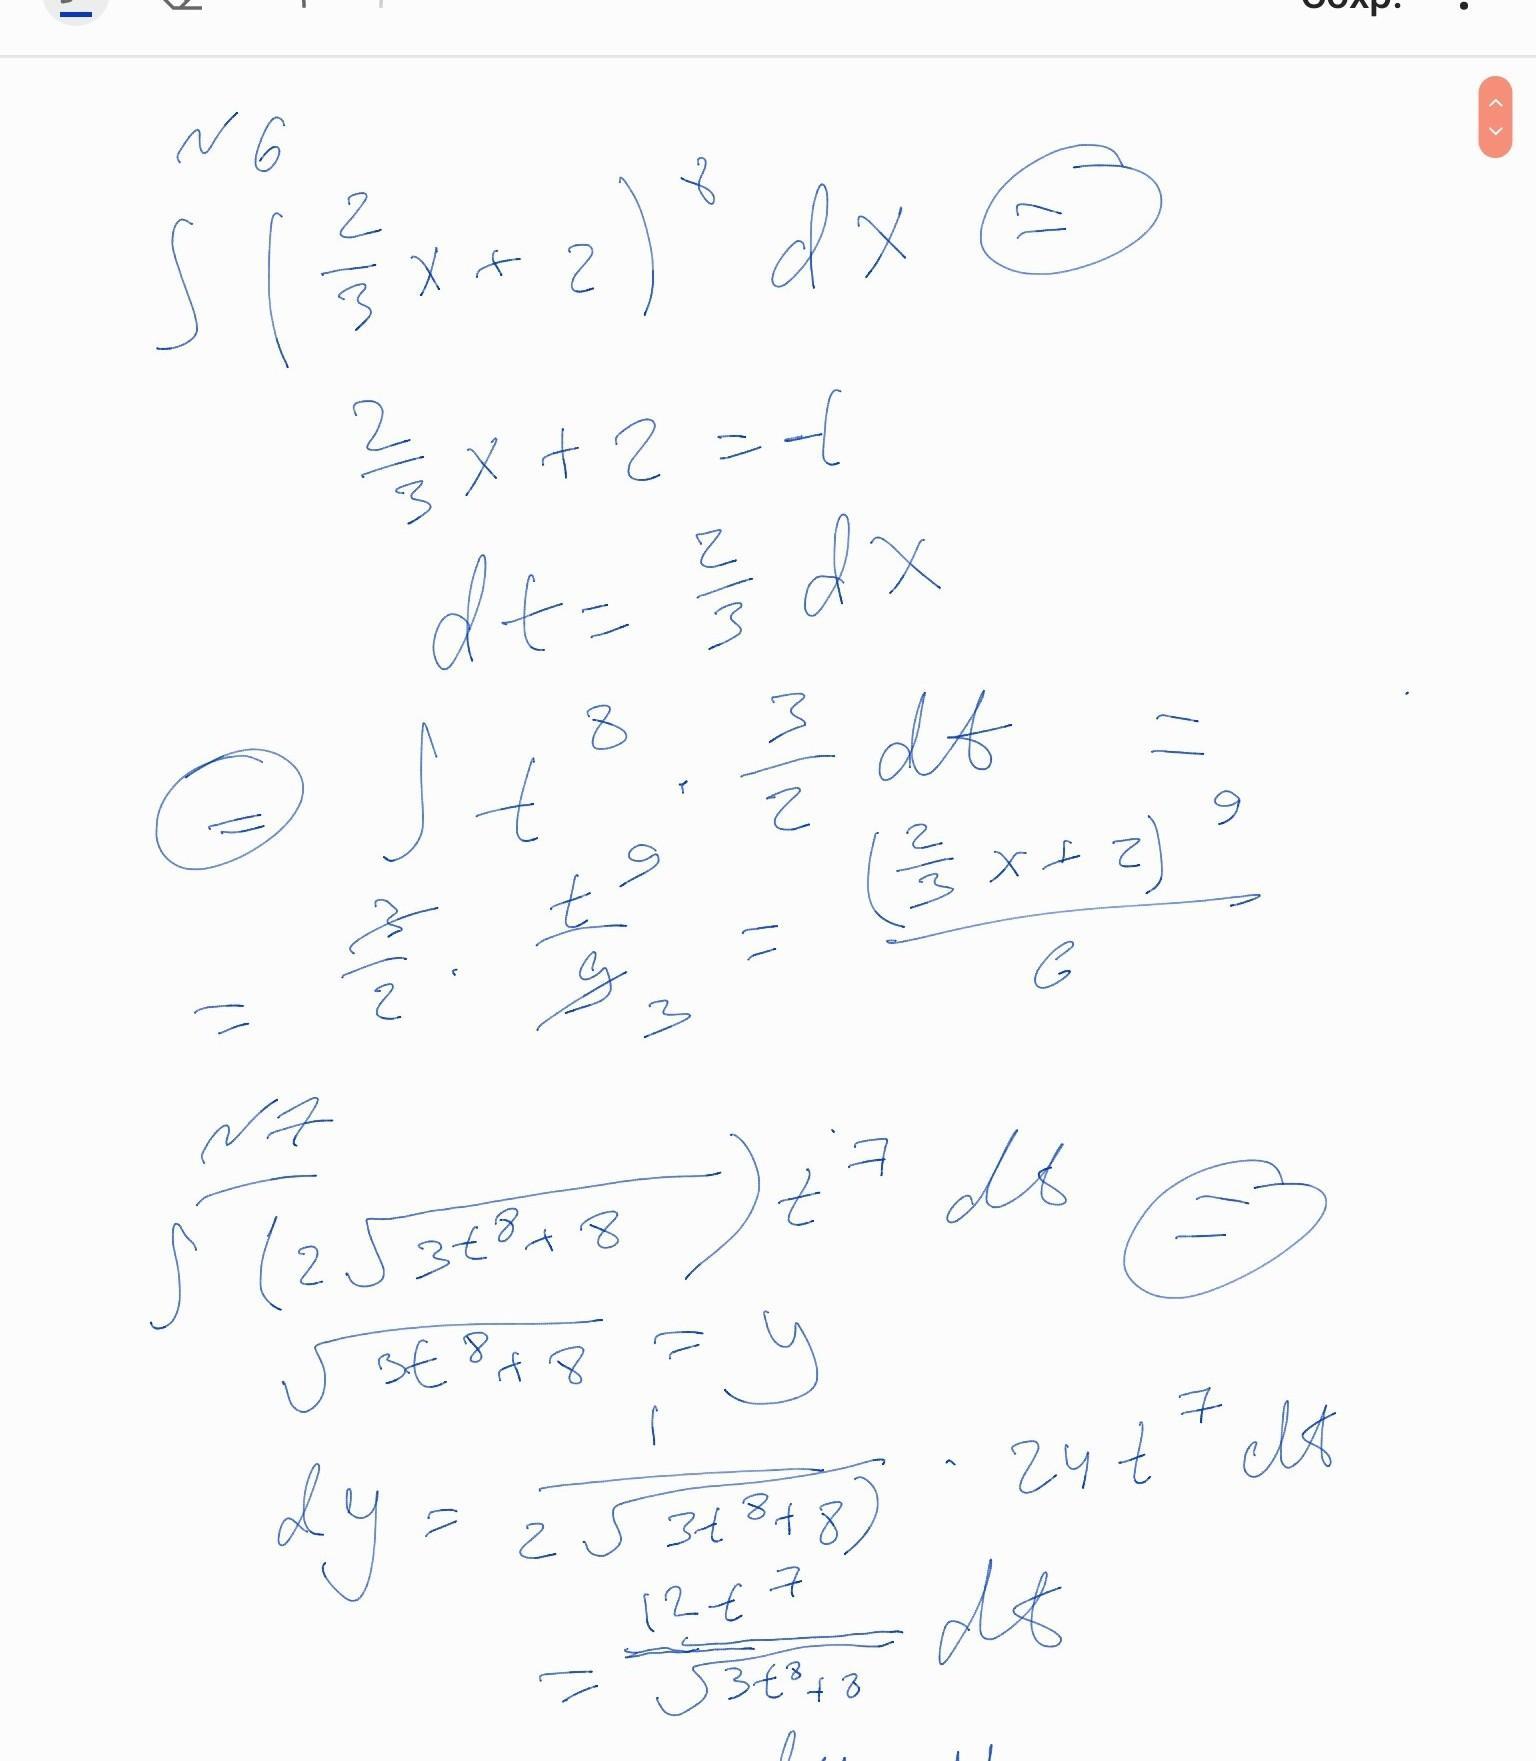 Сохр.
N6
∫ (2/3 x + 2)^8 dx =
2/3 x + 2 = t
dt = 2/3 dx
= ∫ t^8 · 3/2 dt =
= 3/2 · t^9/9 3 = (2/3 x + 2)^9 / 6
N7
∫ (2√(3t^8 + 8)) t^7 dt =
√(3t^8 + 8) = y
dy = 1/(2√(3t^8 + 8)) · 24t^7 dt
= 12t^7/√(3t^8 + 8) dt